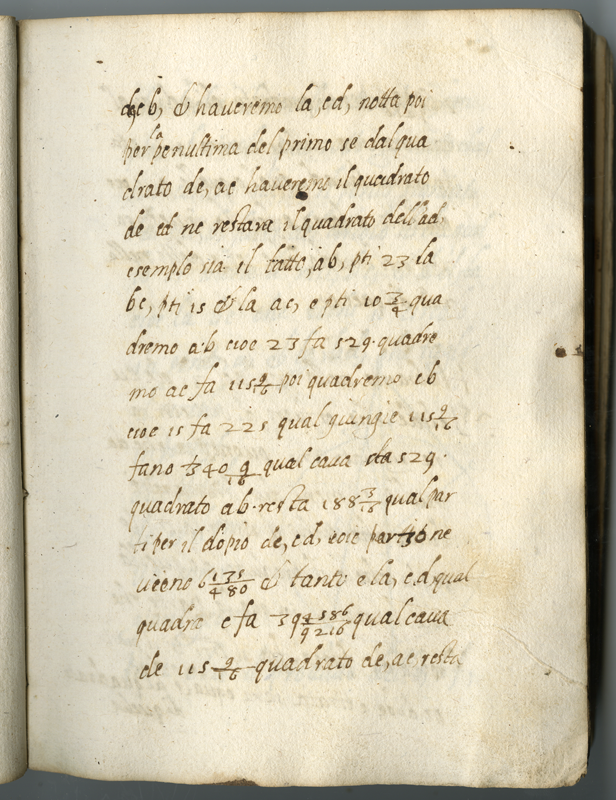 de cb, & haveremo la, cd, notta poi
per la penultima del primo se dal qua
drato de, ac haveremo il quadrato
de cd ne restara il quadrato dell'ad,
esemplo sia il latto, ab, pti 23 la
bc, pti 15 & la ac, e pti 10 3/4 qua
dremo ab cioe 23 fa 529. quadre
mo ac fa 115 9/16 poi quadremo cb
cioe 15 fa 225 qual giungie 115 9/16
fano 340 9/16 qual cava da 529.
quadrato ab. resta 188 3/16 qual par
ti per il dopio de, cd, coie 30 ne
vieeno 6 135/480 & tanto e la, c,d, qual
quadra e fa 39 4586/9216 qual cava
de 115 9/16 quadrato de, ac, resta